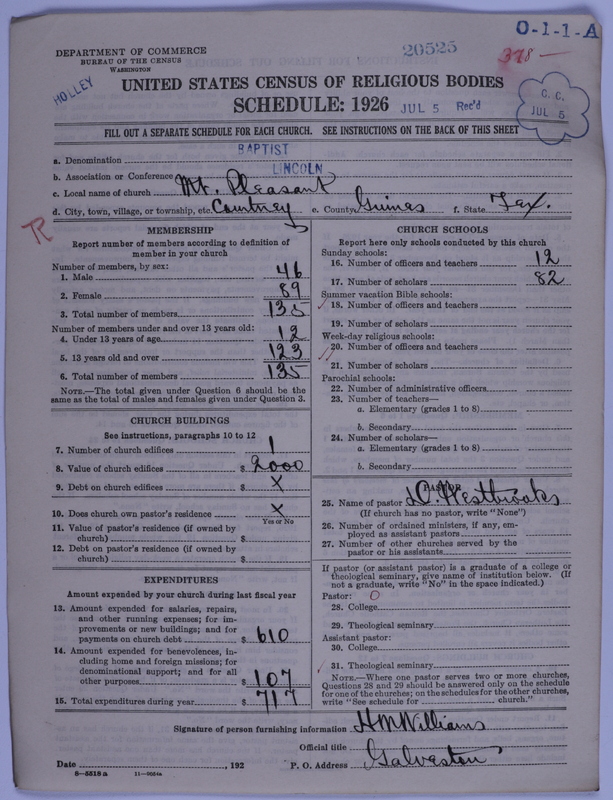 O-1-1-A
DEPARTMENT OF COMMERCE
BUREAU OF THE CENSUS
WASHINGTON
20525
378 —
HOLLEY
UNITED STATES CENSUS OF RELIGIOUS BODIES
SCHEDULE: 1926 JUL 5 Rec'd
C. C.
JUL 5
FILL OUT A SEPARATE SCHEDULE FOR EACH CHURCH. SEE INSTRUCTIONS ON THE BACK OF THIS SHEET
a. Denomination BAPTIST
b. Association or Conference LINCOLN
c. Local name of church Mt. Pleasant
d. City, town, village, or township, etc. Courtney e. County Grimes f. State Tex.
R
MEMBERSHIP
Report number of members according to definition of
member in your church
Number of members, by sex:
1. Male 46
2. Female 89
3. Total number of members 135
Number of members under and over 13 years old:
4. Under 13 years of age 12
5. 13 years old and over 123
6. Total number of members 135
NOTE.—The total given under Question 6 should be the
same as the total of males and females given under Question 3.
CHURCH BUILDINGS
See instructions, paragraphs 10 to 12
7. Number of church edifices 1
8. Value of church edifices $ 2000
9. Debt on church edifices $ X
10. Does church own pastor's residence X
Yes or No
11. Value of pastor's residence (if owned by
church) $
12. Debt on pastor's residence (if owned by
church) $
EXPENDITURES
Amount expended by your church during last fiscal year
13. Amount expended for salaries, repairs,
and other running expenses; for im-
provements or new buildings; and for
payments on church debt $ 610
14. Amount expended for benevolences, in-
cluding home and foreign missions; for
denominational support; and for all
other purposes $ 107
15. Total expenditures during year $ 717
CHURCH SCHOOLS
Report here only schools conducted by this church
Sunday schools:
16. Number of officers and teachers 12
17. Number of scholars 82
Summer vacation Bible schools:
18. Number of officers and teachers
19. Number of scholars
Week-day religious schools:
20. Number of officers and teachers
21. Number of scholars
Parochial schools:
22. Number of administrative officers
23. Number of teachers—
a. Elementary (grades 1 to 8)
b. Secondary
24. Number of scholars—
a. Elementary (grades 1 to 8)
b. Secondary
PASTOR
25. Name of pastor Westbrooks
(If church has no pastor, write "None")
26. Number of ordained ministers, if any, em-
ployed as assistant pastors
27. Number of other churches served by the
pastor or his assistants
If pastor (or assistant pastor) is a graduate of a college or
theological seminary, give name of institution below. (If
not a graduate, write "No" in the space indicated.)
Pastor: O
28. College
29. Theological seminary
Assistant pastor:
30. College
31. Theological seminary
NOTE.—Where one pastor serves two or more churches,
Questions 28 and 29 should be answered only on the schedule
for one of the churches; on the schedules for the other churches,
write "See schedule for church."
Signature of person furnishing information H M Williams
Official title
Date , 192 P. O. Address Galveston
8—5518 a 11—9054a